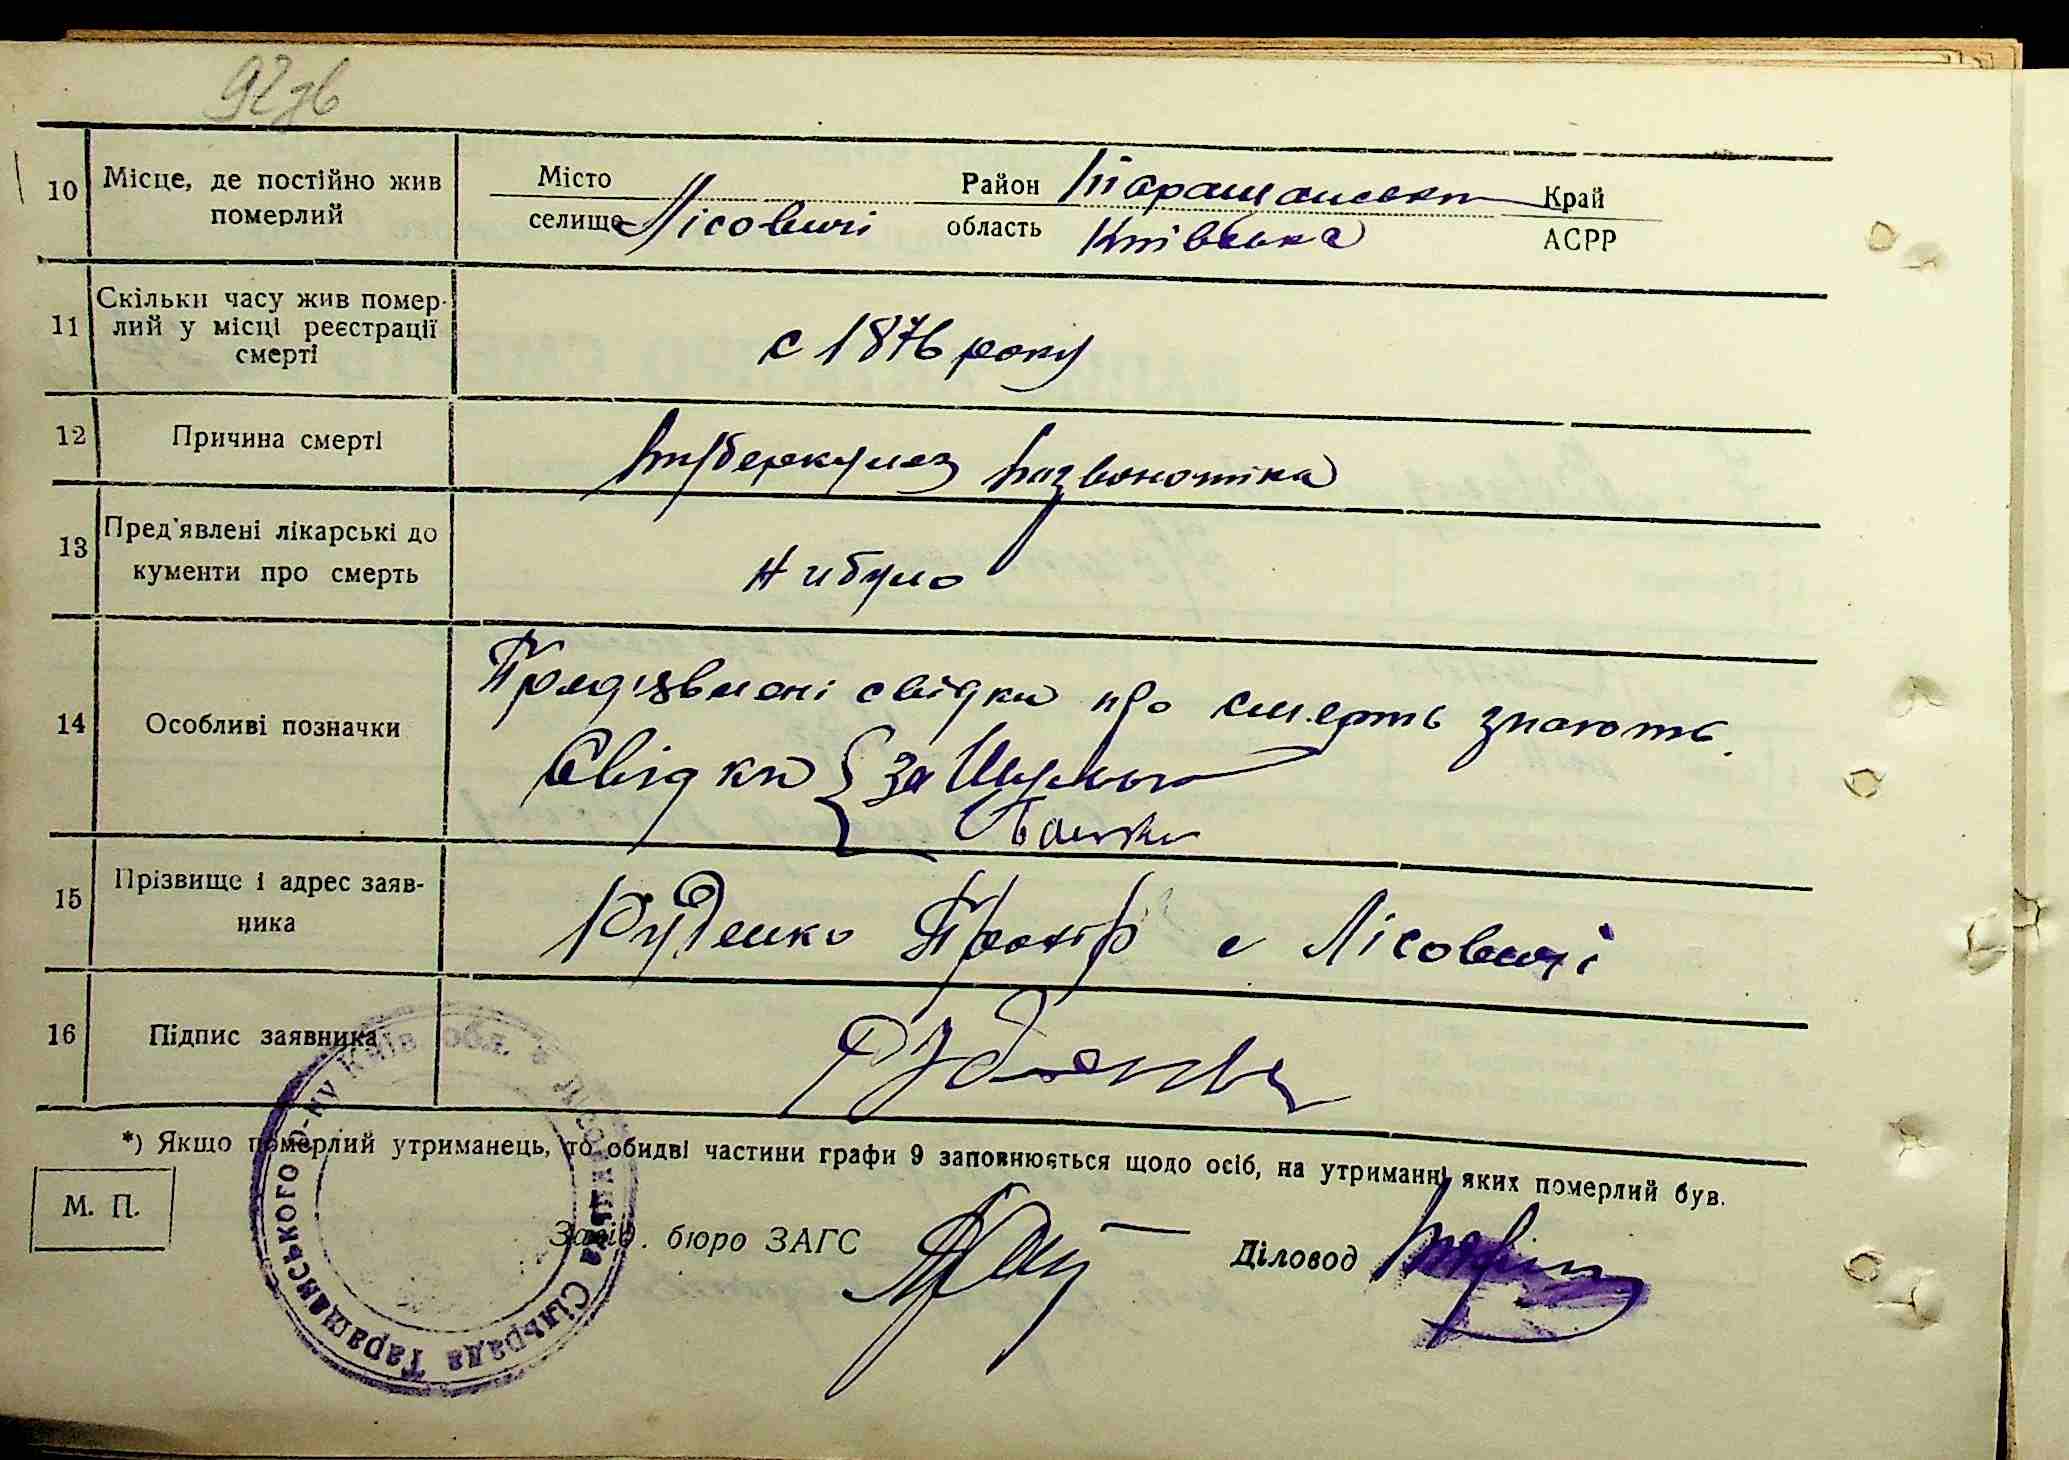 92зв
10 Місце, де постійно жив померлий
Місто Район Тарашанський Край
селище Лісовичі область Київська АСРР
11 Скільки часу жив помер-
лий у місці реєстрації
смерті
с 1876 року
12 Причина смерті
туберкульоз позвоночніка
13 Пред'явлені лікарські до
кументи про смерть
ни було
14 Особливі позначки
Пред'явлені свідки про смерть знають.
Свідки { за
15 Прізвище і адрес заяв-
ника
Руденко с Лісовичі
16 Підпис заявника
*) Якщо померлий утриманець, то обидві частини графи 9 заповнюється щодо осіб, на утриманні яких померлий був.
М. П.
Завід. бюро ЗАГС
Діловод
Лісовицька Сільрада Таращанського р-ну Київ. обл.